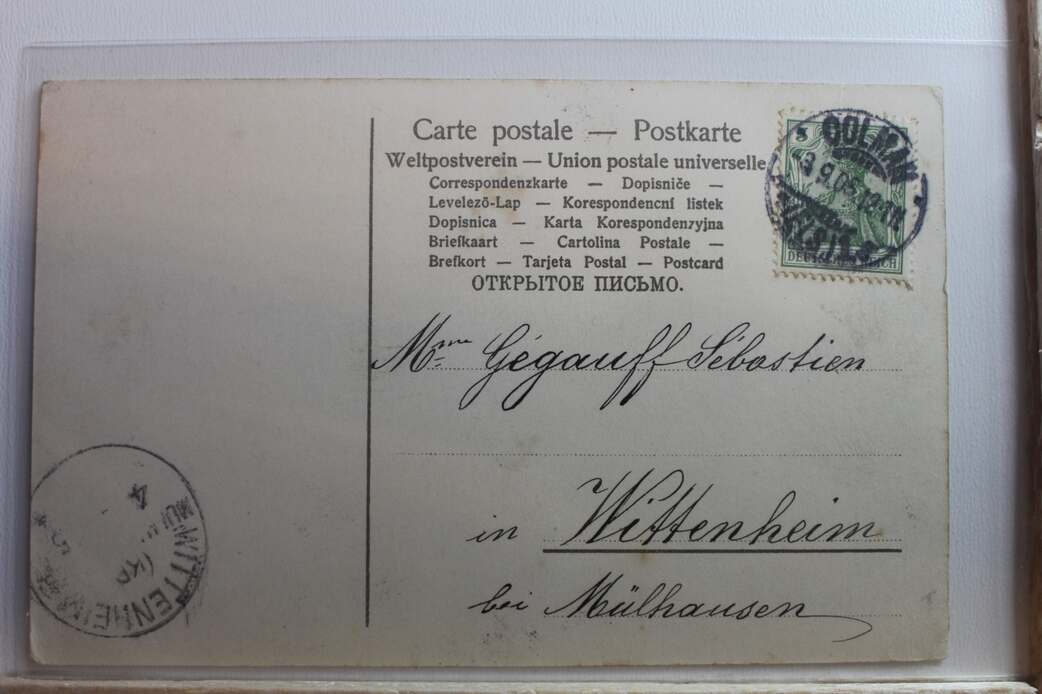 Carte postale — Postkarte
Weltpostverein — Union postale universelle
Correspondenzkarte — Dopisniče —
Levelező-Lap — Korespondencní listek
Dopisnica — Karta Korespondenzyjna
Briefkaart — Cartolina Postale —
Brefkort — Tarjeta Postal — Postcard
ОТКРЫТОЕ ПИСЬМО.
COLMAR
DEUTSCHES REICH
Mme Gégauff Sébastien
in Wittenheim
bei Mülhausen
WITTENHEIM
4